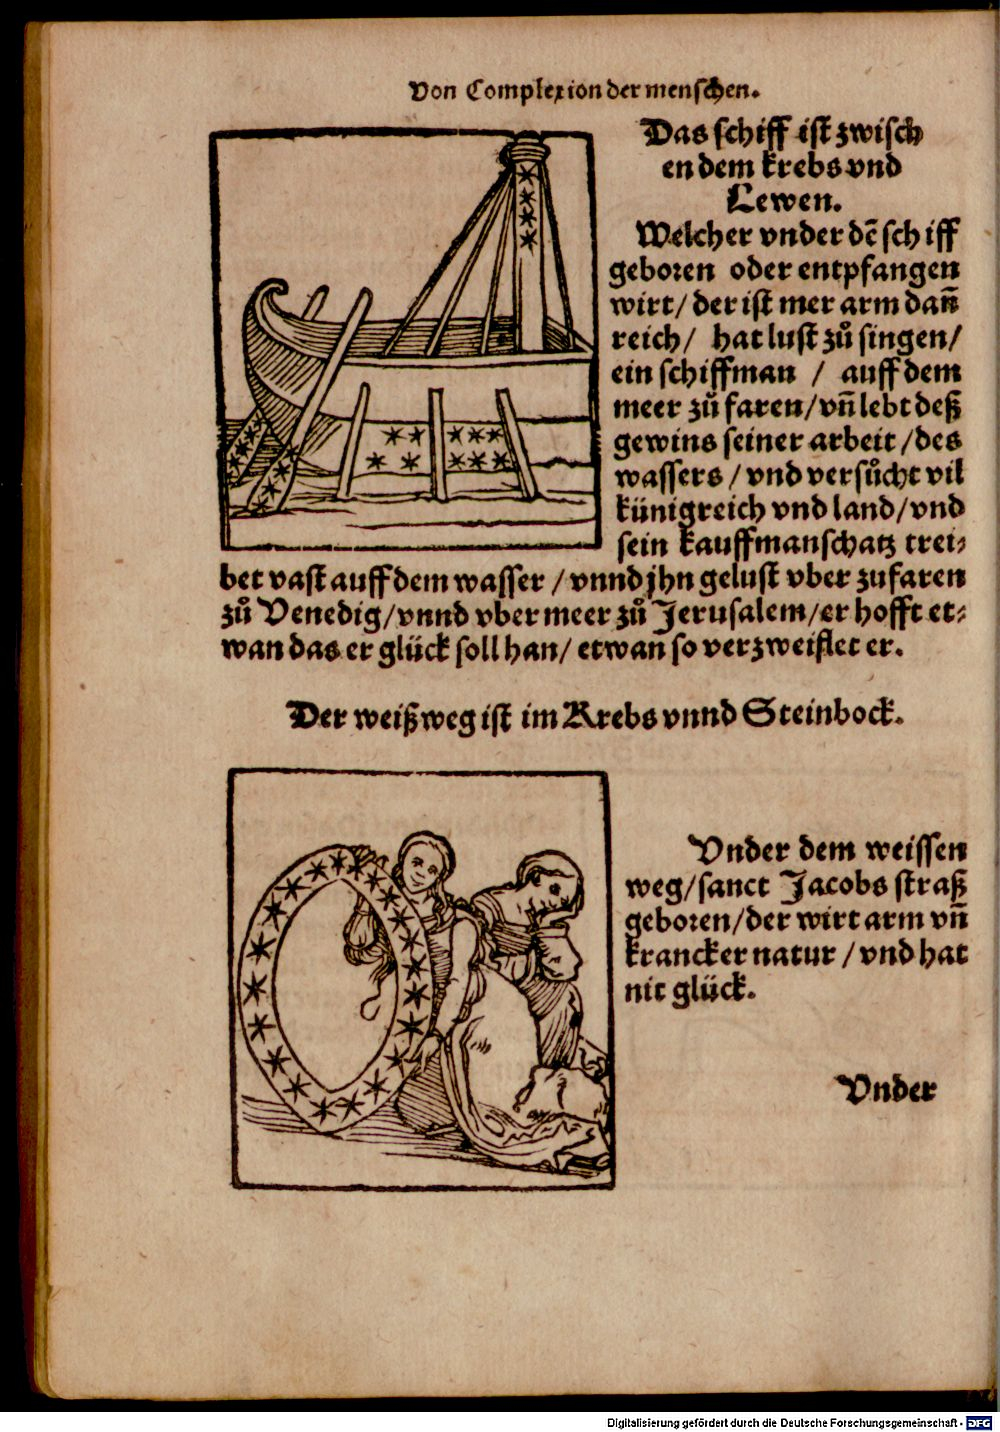 Von Complexion der menschen.
Das schiff ist zwisch
en dem krebs vnd
Lewen.
Welcher vnder dẽ schiff
geboren oder entpfangen
wirt/ der ist mer arm dañ
reich/ hat lust zů singen/
ein schiffman / auff dem
meer zů faren/vñ lebt deß
gewins seiner arbeit /des
wassers / vnd versůcht vil
künigreich vnd land/vnd
sein kauffmanschatz trei-
bet vast auff dem wasser /vnnd jhn gelust vber zufaren
zů Venedig/vnnd vber meer zů Jerusalem/er hofft et-
wan das er glück soll han/ etwan so verzweiflet er.
Der weißweg ist im Krebs vnnd Steinbock.
Vnder dem weissen
weg/sanct Jacobs straß
geboren/der wirt arm vñ
krancker natur /vnd hat
nit glück.
Vnder
Digitalisierung gefördert durch die Deutsche Forschungsgemeinschaft - DFG